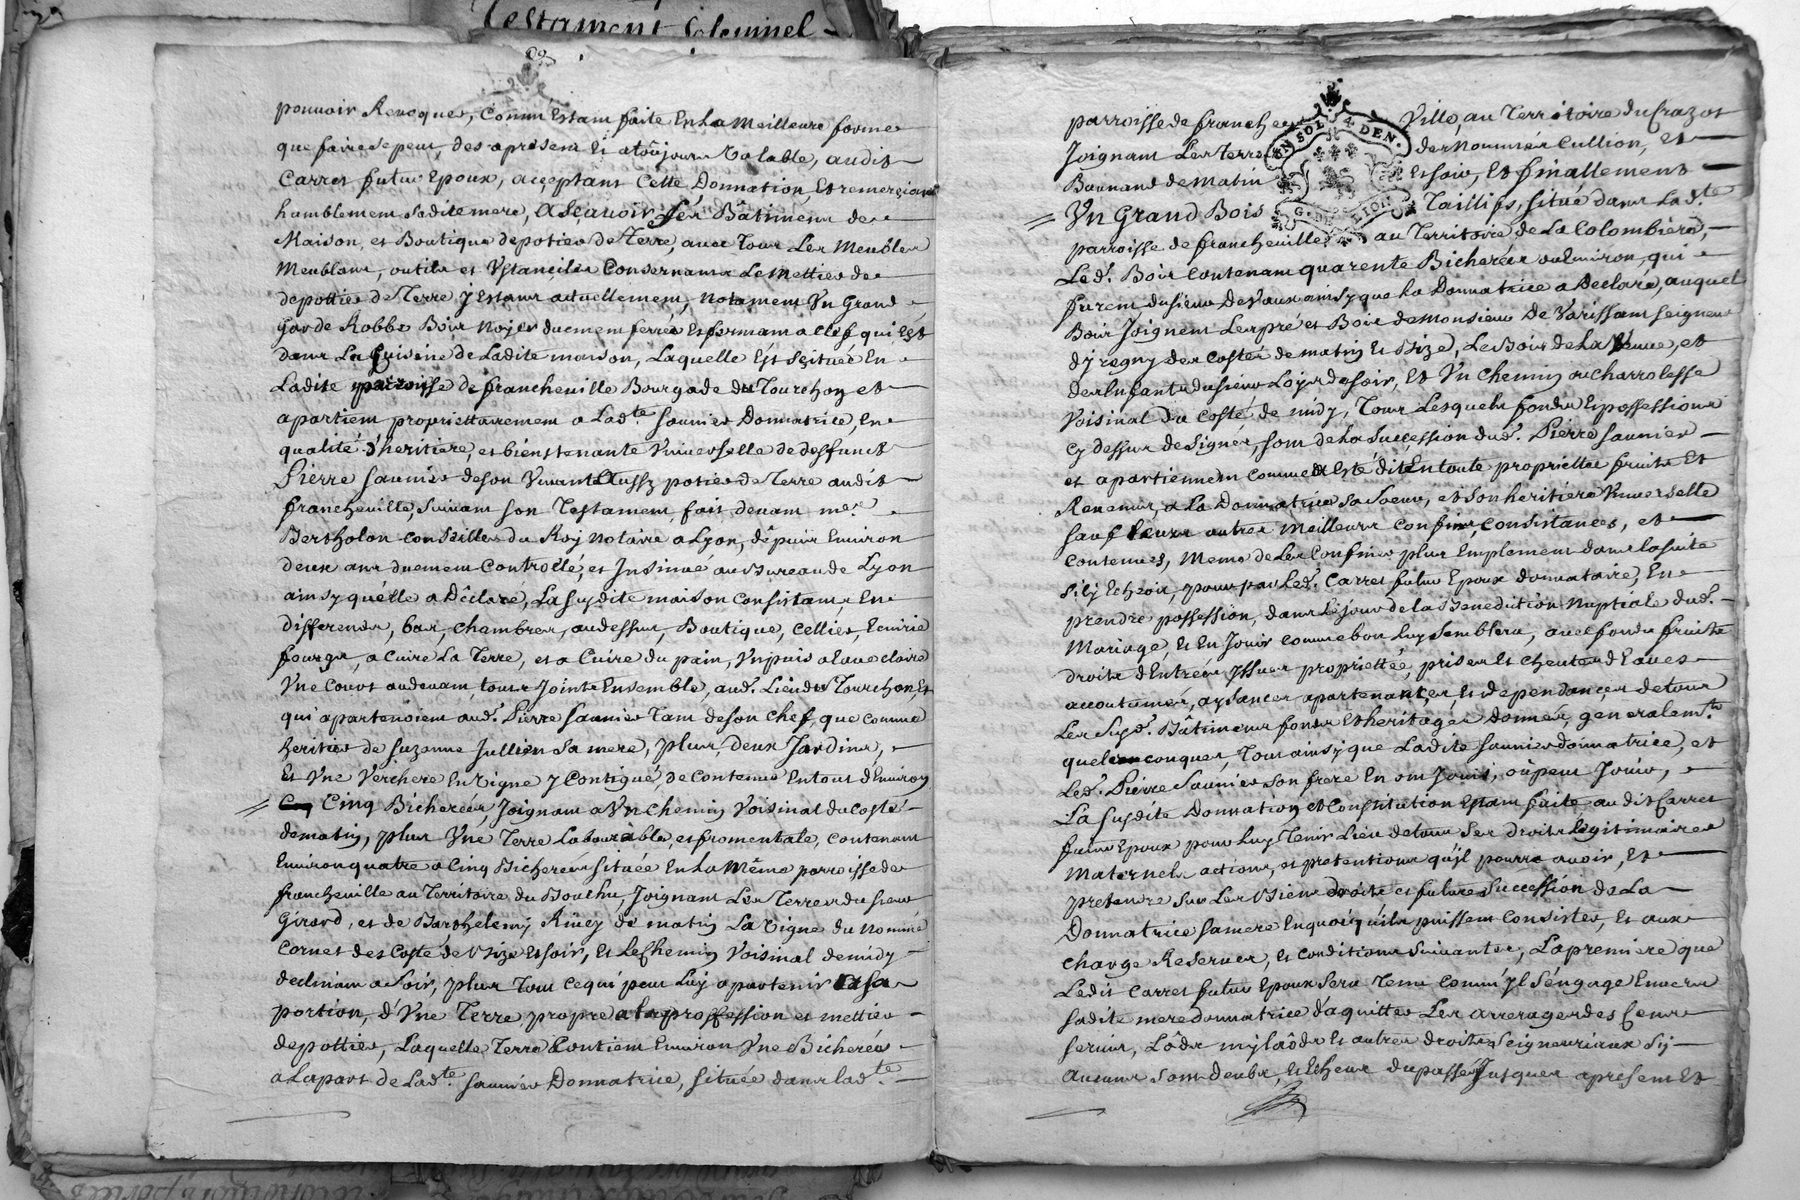 Testament solemnel
pouvoir Revoquer, Comm'Estant faite En La Meilleure forme
que faire se peut, des apresent et a toûjours Valable, audit
Carret futur Epoux, acceptant Cette Donnation, Et remerciant
humblement sadite mere, ASçavoir Les Bâtiments de
Maison, et Boutique de potier de Terre, avec Tous Les Meubles
Meublant, outils et Ystanciles Consernants Le Mettier de
depottier de Terre y Estant actuellement, Notament Un Grand
Garde Robbe Bois Noyer duement ferrée Et fermant a clef qui Est
dans La Cuisine de Ladite maison, Laquelle Est Scituée En
Ladite parroisse de francheville Bourgade du Tourchon et
apartient proprietairement a Lad.te saunier Donnatrice, En
qualité d'heritiere, et bienstenante Universelle de deffunct
Pierre Saunier de son Vivant Aussy potier de Terre audit
francheville, Suivant son Testament fait devant me.
Bertholon Conseiller du Roy Notaire a Lyon, depuis Environ
deux ans duement Controllé, et Insinué au Bureau de Lyon
ainsy qu'elle a Déclaré, La susdite maison Consistant, En
differents, bas, chambres, audessus, Boutique, Cellier, Ecurie
fourgs, a Cuire La Terre, et a Cuire du pain, Un puis a Eau claire
Une Court audevant, tous Joints Ensemble, aud. Lieu du Tourchon, Et
qui apartenoient aud. Pierre Saunier Tant de son Chef, que Comme
heritier de Suzanne Jullien Sa mere, plus, deux Jardins,
Et Une Verchere En Vigne y Contiguë, de Contenue En tout d'Environ
Cinq Bicherées, Joignant a Un Chemin Voisinal du Costé
de matin, plus Une Terre Labourable, et fromentale, contenant
Environ quatre a Cinq Bicherées située En La Même parroisse de
francheville au Territoire du Boulhu, Joignant Les Terres du sieur
Girard, et de Barthelemy Ruey de matin La Vigne du Nommé
Cornet des Costé de Bize Et soir, Et Le Chemin Voisinal de midy
declinant a Soir, plus Tout Ce qui peut Luy apartenir Et sa
portion, d'Une Terre propre a La proffession et mettier
de pottier, Laquelle Terre Contient Environ Une Bicherée
a La part de Lad.te saunier Donnatrice, située dans Lad.te
parroisse de francheville, au Territoire du Crazot
Joignant Les Terres des Nommés Cullion, Et
Bounand de Matin Et soir, Et finallement
Un Grand Bois Taillifs, situé dans Lad.te
parroisse de francheville au Territoire de La Colombiere,
Led. Bois Contenant quarente Bicherées ou Environ, qui
furent du sieur Devaux ainsy que La Donnatrice a Declaré, auquel
Bois Joignent Les pré et Bois de Monsieur De Varissant seigneur
d'yregny des Costés de matin Et Bize, Le Bois de La Veuve, et
des Enfants du sieur Loyer de soir, Et Un Chemin ou Charrolesse
Voisinal du Costé de midy, Tous Lesquels fonds Et possessions
Cy dessus designés, sont de La Succession dud. Pierre saunier
et apartiennent Comme Il a Esté dit En toute proprietté fruits Et
Revenus, a La Donnatrice sa Soeur, et son heritiere Universelle
sauf Leurs autres Meilleurs Confins, Consistances, et
Contenues, Meme de Les Confiner plus Emplement dans La suite
S'il y Echeoit, pour par Led. Carret futur Epoux donnataire, En
prendre possession, dans Le jour de La Benediction Nuptiale dud.
Mariage, Et En Jouir Comme bon Luy Semblera, avec fonds fruits
droits d'Entrées, Yssues proprietté, prises Et Cheutes d'Eaues
accoutumés, aysances apartenances, Et dependances de tous
Les Susd. Bâtiments fonds Et heritages Donnés, generalem.t
quelconques, Tout ainsy que Ladite saunier donnatrice, et
Led. Pierre Saunier son frere En ont Joüis, ou peut Joüir,
La susdite Donnation et Constitution Estant faite audit Carret
futur Epoux, pour Luy Tenir Lieu de tous Ses droits Legitimaires
Maternels actions, et pretentions qu'il pourra avoir, Et
pretendre Sur Les Biens droits et future Succession de La
Donnatrice Sa mere En quoiqu'ils puissent Consister, Et aux
Charge Reserves, Et Conditions suivantes, La premiere que
Ledit Carret futur Epoux Sera Tenu Comm'Il S'engage Envers
sadite mere donnatrice d'aquitter Les arrerages des Cens
servis, Lôds mylaôds Et autres droits Seigneuriaux Sy
aucuns sont deubs, et Echeus du passé Jusques apresent Et
G. DE LION
EN SOL 4 DEN.